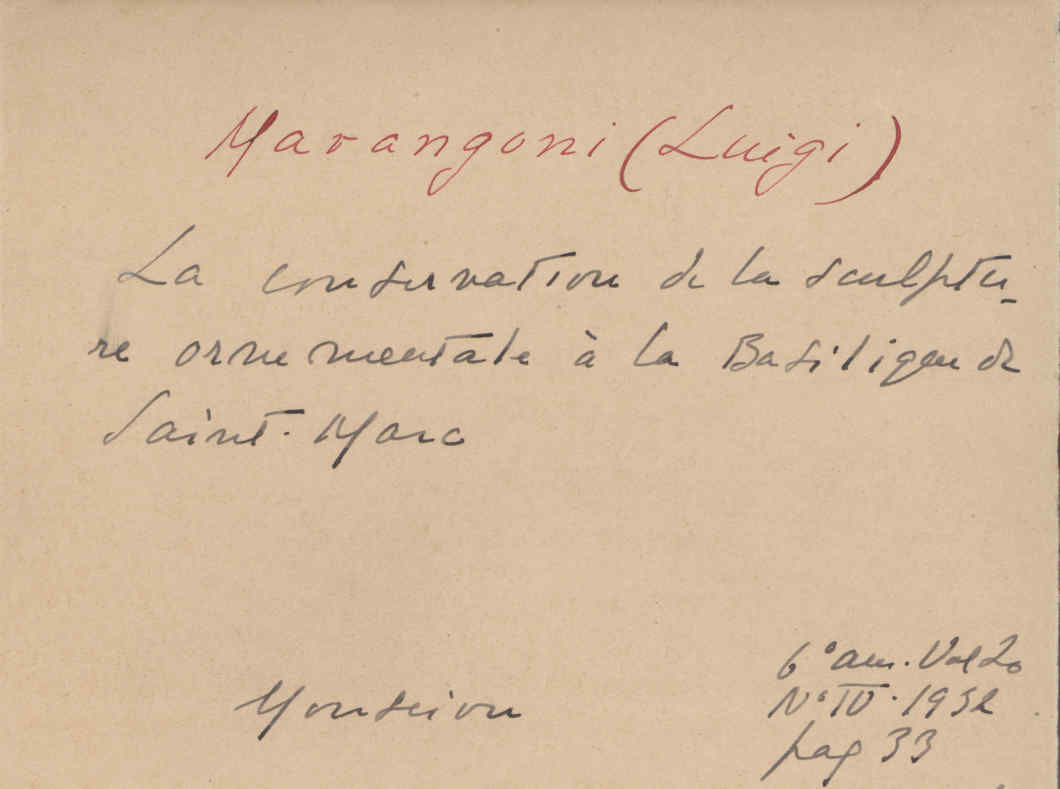 Marangoni (Luigi)
La conservation de la sculptu-
re ornementale à la Basilique de
Saint-Marc
Mouseion
6° ann. Vol 20
N° IV. 1932
pag 33